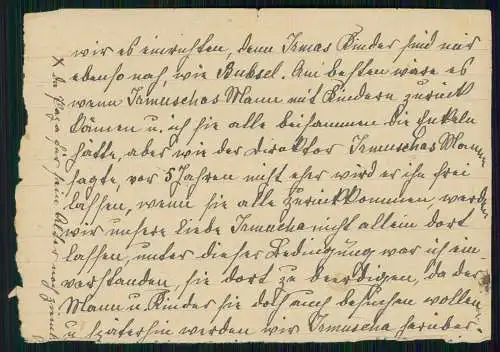 wir es einrichten, denn Irmas Kinder sind mir
ebenso nah, wie Bubsel. Am besten wäre es
wenn Irmuschas Mann mit Kindern zurück
kämen u. ich sie alle beisammen die Enkeln
hätte, aber wie der Direktor Irmuschas Manne
sagte, vor 5 Jahren nicht eher wird er ihn frei
lassen, wenn sie alle zurückkommen, werden
wir unsere liebe Irmuscha nicht allein dort
lassen, unter dieser Bedingung war ich ein-
verstanden, sie dort zu beerdigen, da der
Mann u. Kinder sie doch auch besuchen wollen
u. späterhin werden wir Irmuscha herüber-
x da Papa für sein Alter noch